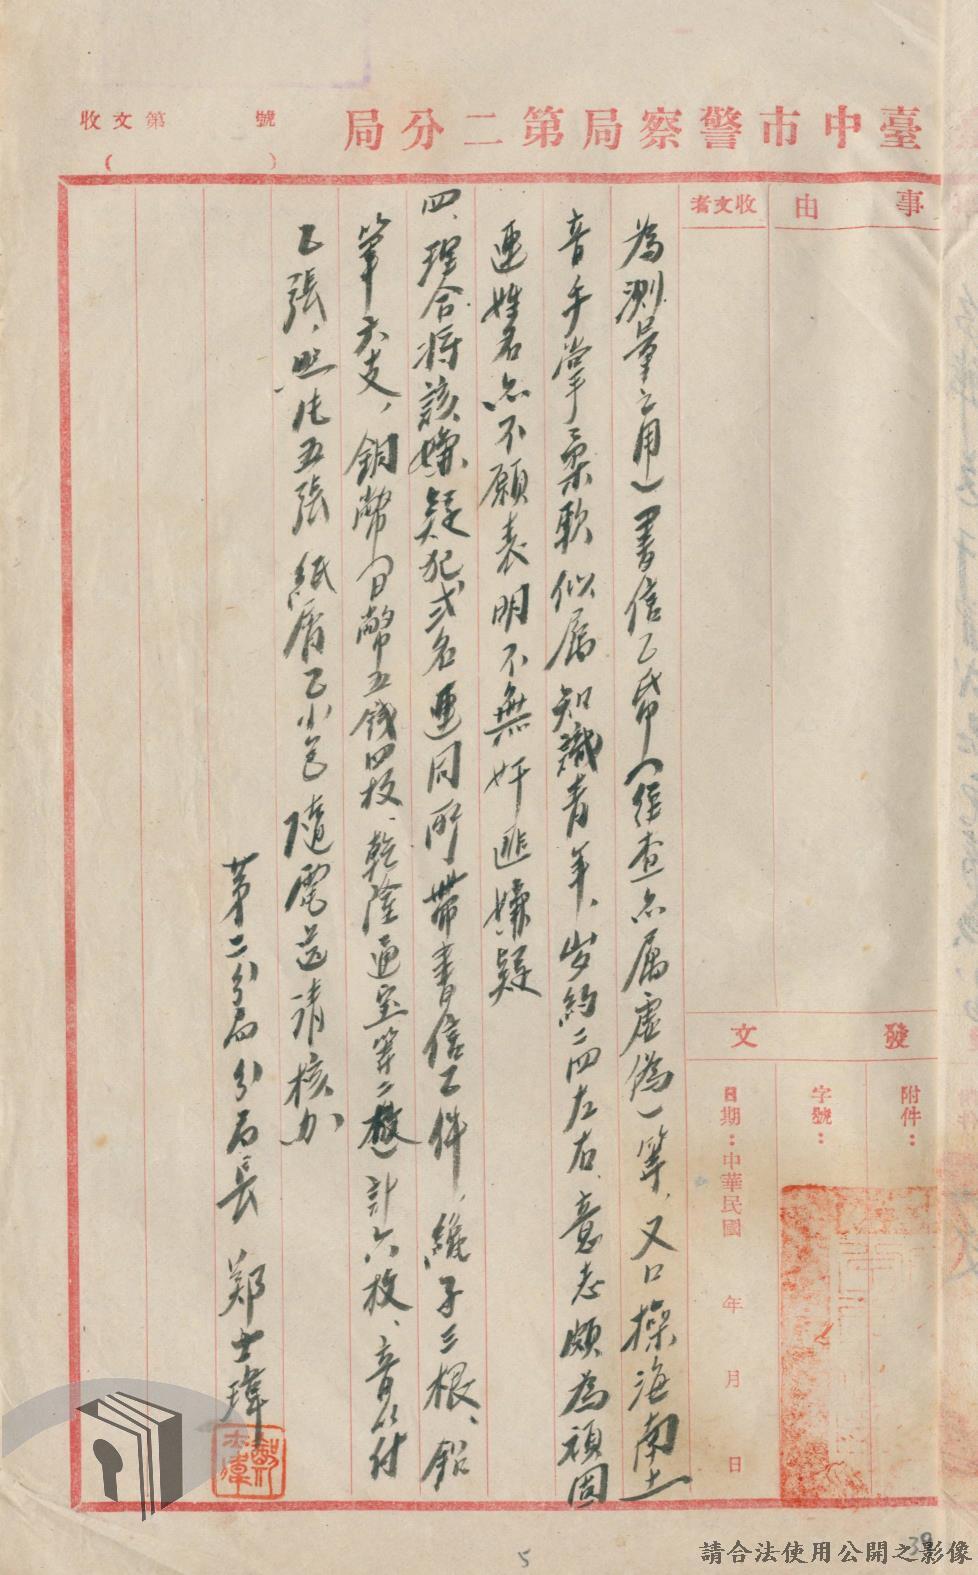 臺中市警察局第二分局
收文第　　號
(　　)
事由
收文者
發文
附件：
字號：
日期：中華民國　年　月　日
為測量之用)書信乙帋(經查亦屬虛偽)等、又口操海南土
音手掌柔軟似屬知識青年、歲約二四左右、意志頗為頑固
連姓名亦不願表明不無奸匪嫌疑
四、理合將該嫌疑犯弍名連同所帶書信乙件、繩子三根、鉛
筆六支，銅幣日幣五錢四枚、乾隆通宝等二枚計六枚、身份
乙張，照片五張紙屑乙小包隨電送請核办
第二分局分局長 鄭士瑋
5
39
請合法使用公開之影像